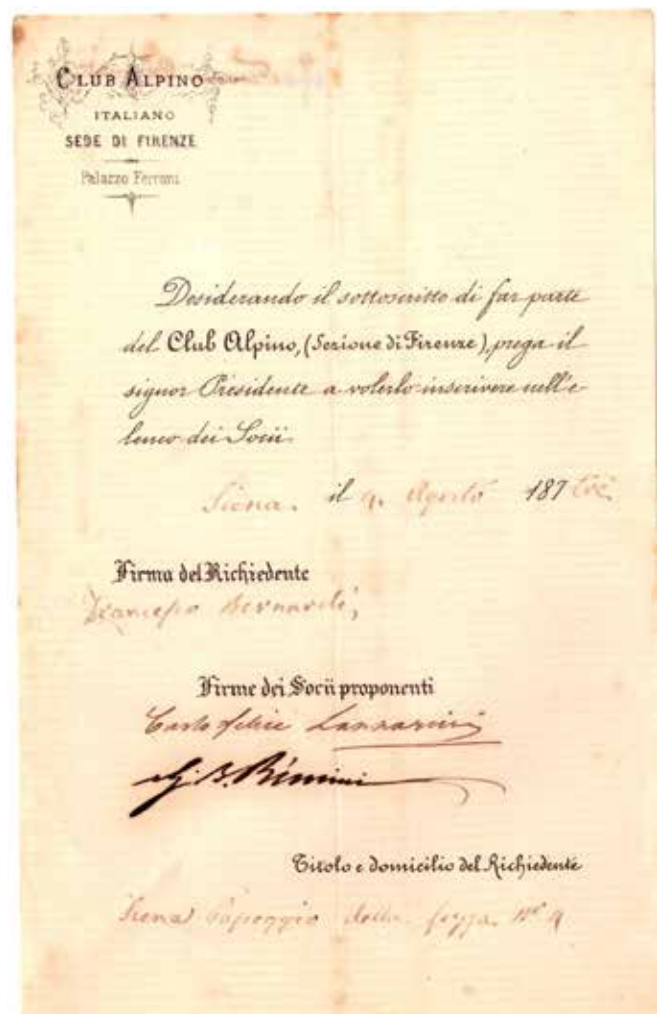 CLUB ALPINO
ITALIANO
SEDE DI FIRENZE
Palazzo Ferroni
Desiderando il sottoscritto di far parte
del Club Alpino, (Sezione di Firenze), prega il
signor Presidente a volerlo inscrivere nell'e-
lenco dei Socii.
Siena. il 9. Agosto 187
Firma del Richiedente
Francesco Bernardi
Firme dei Socii proponenti
Carlo felice
G. B. Rimini
Titolo e domicilio del Richiedente
Siena della No 9